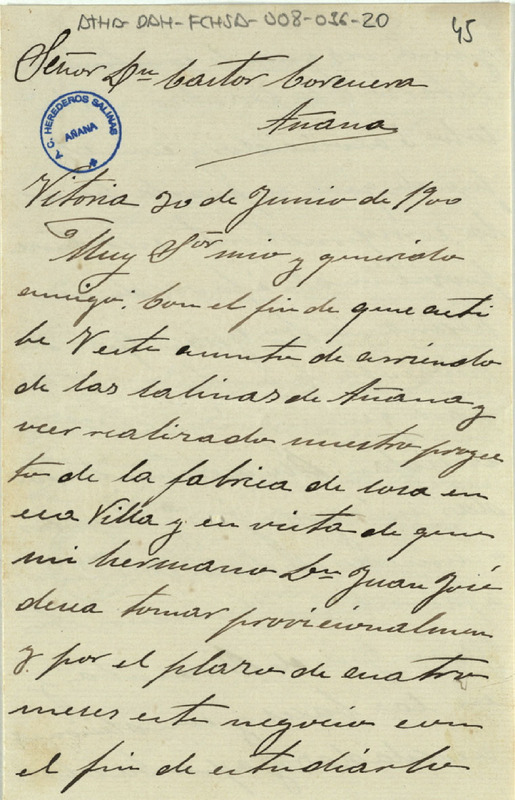 ATHA-DAH-FCHSA-008-036-20
45
Señor Dn Castor Corcuera
Añana
A. C. HEREDEROS SALINAS
AÑANA
Vitoria 20 de Junio de 1900
Muy Sor mio y querido
amigo: Con el fin de que acti
be V este asunto de arriendo
de las salinas de Añana y
veer realizado nuestro proyec
to de la fabrica de sosa en
esa Villa y en vista de que
mi hermano Dn Juan José
desea tomar provisionalmen
y por el plazo de cuatro
meses este negocio con
el fin de estudiarlo